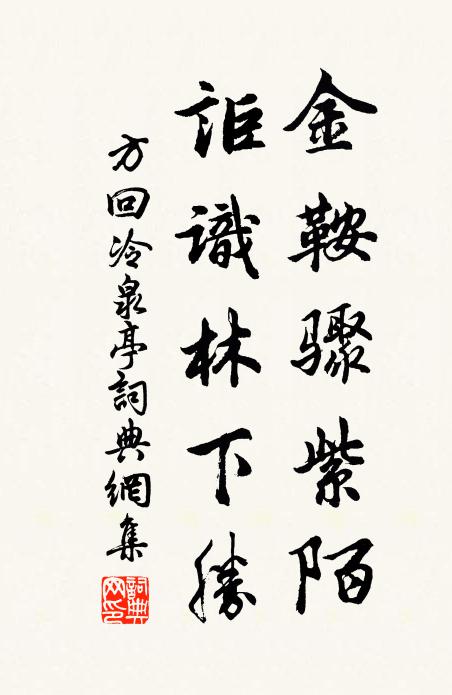 金鞍驟紫陌
詎識林下勝
方回冷泉亭詞典網集
詞典网印